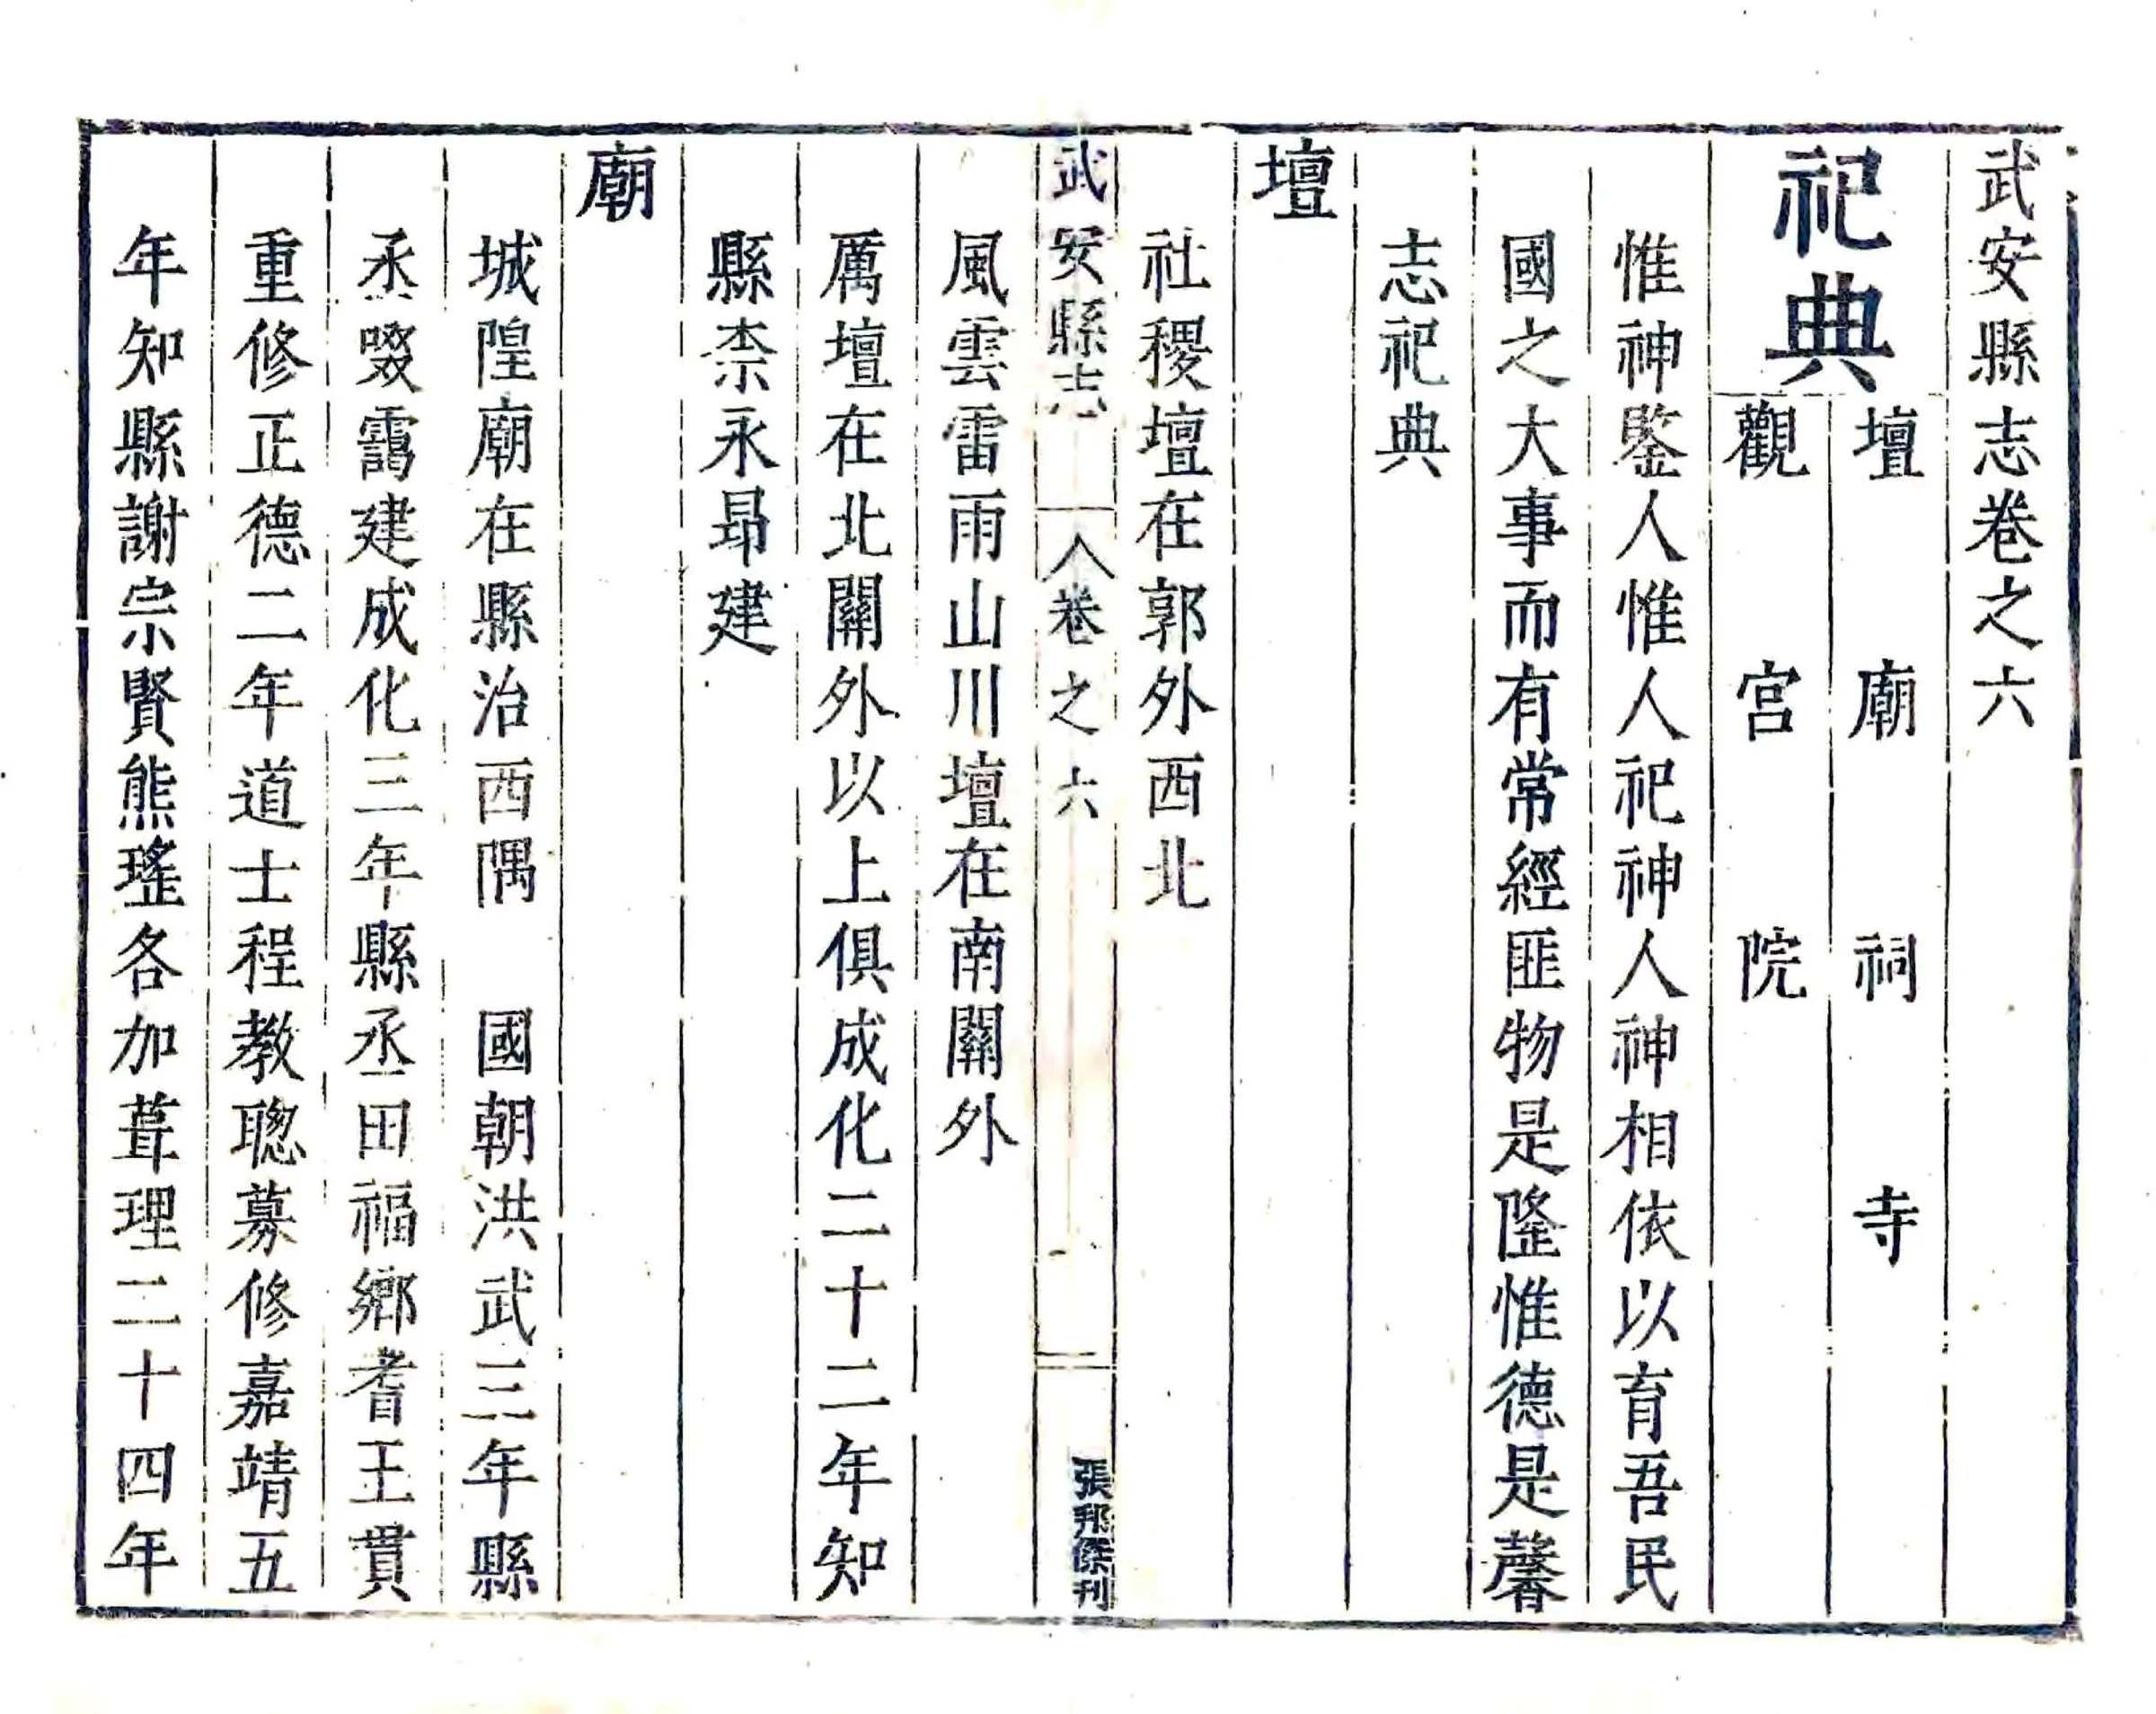 武安縣志卷之六
祀典
壇 廟 祠 寺
觀 宮 院
惟神鑒人惟人祀神人神相依以育吾民
國之大事而有常經匪物是隆惟德是馨
志祀典
壇
社稷壇在郭外西北
武安縣志 卷之六 一 張邦傑刊
風雲雷雨山川壇在南關外
厲壇在北關外以上俱成化二十二年知
縣柰永昂建
廟
城隍廟在縣治西隅 國朝洪武三年縣
丞啜靄建成化三年縣丞田福鄉耆王貫
重修正德二年道士程教聰募修嘉靖五
年知縣謝宗賢熊瑤各加葺理二十四年